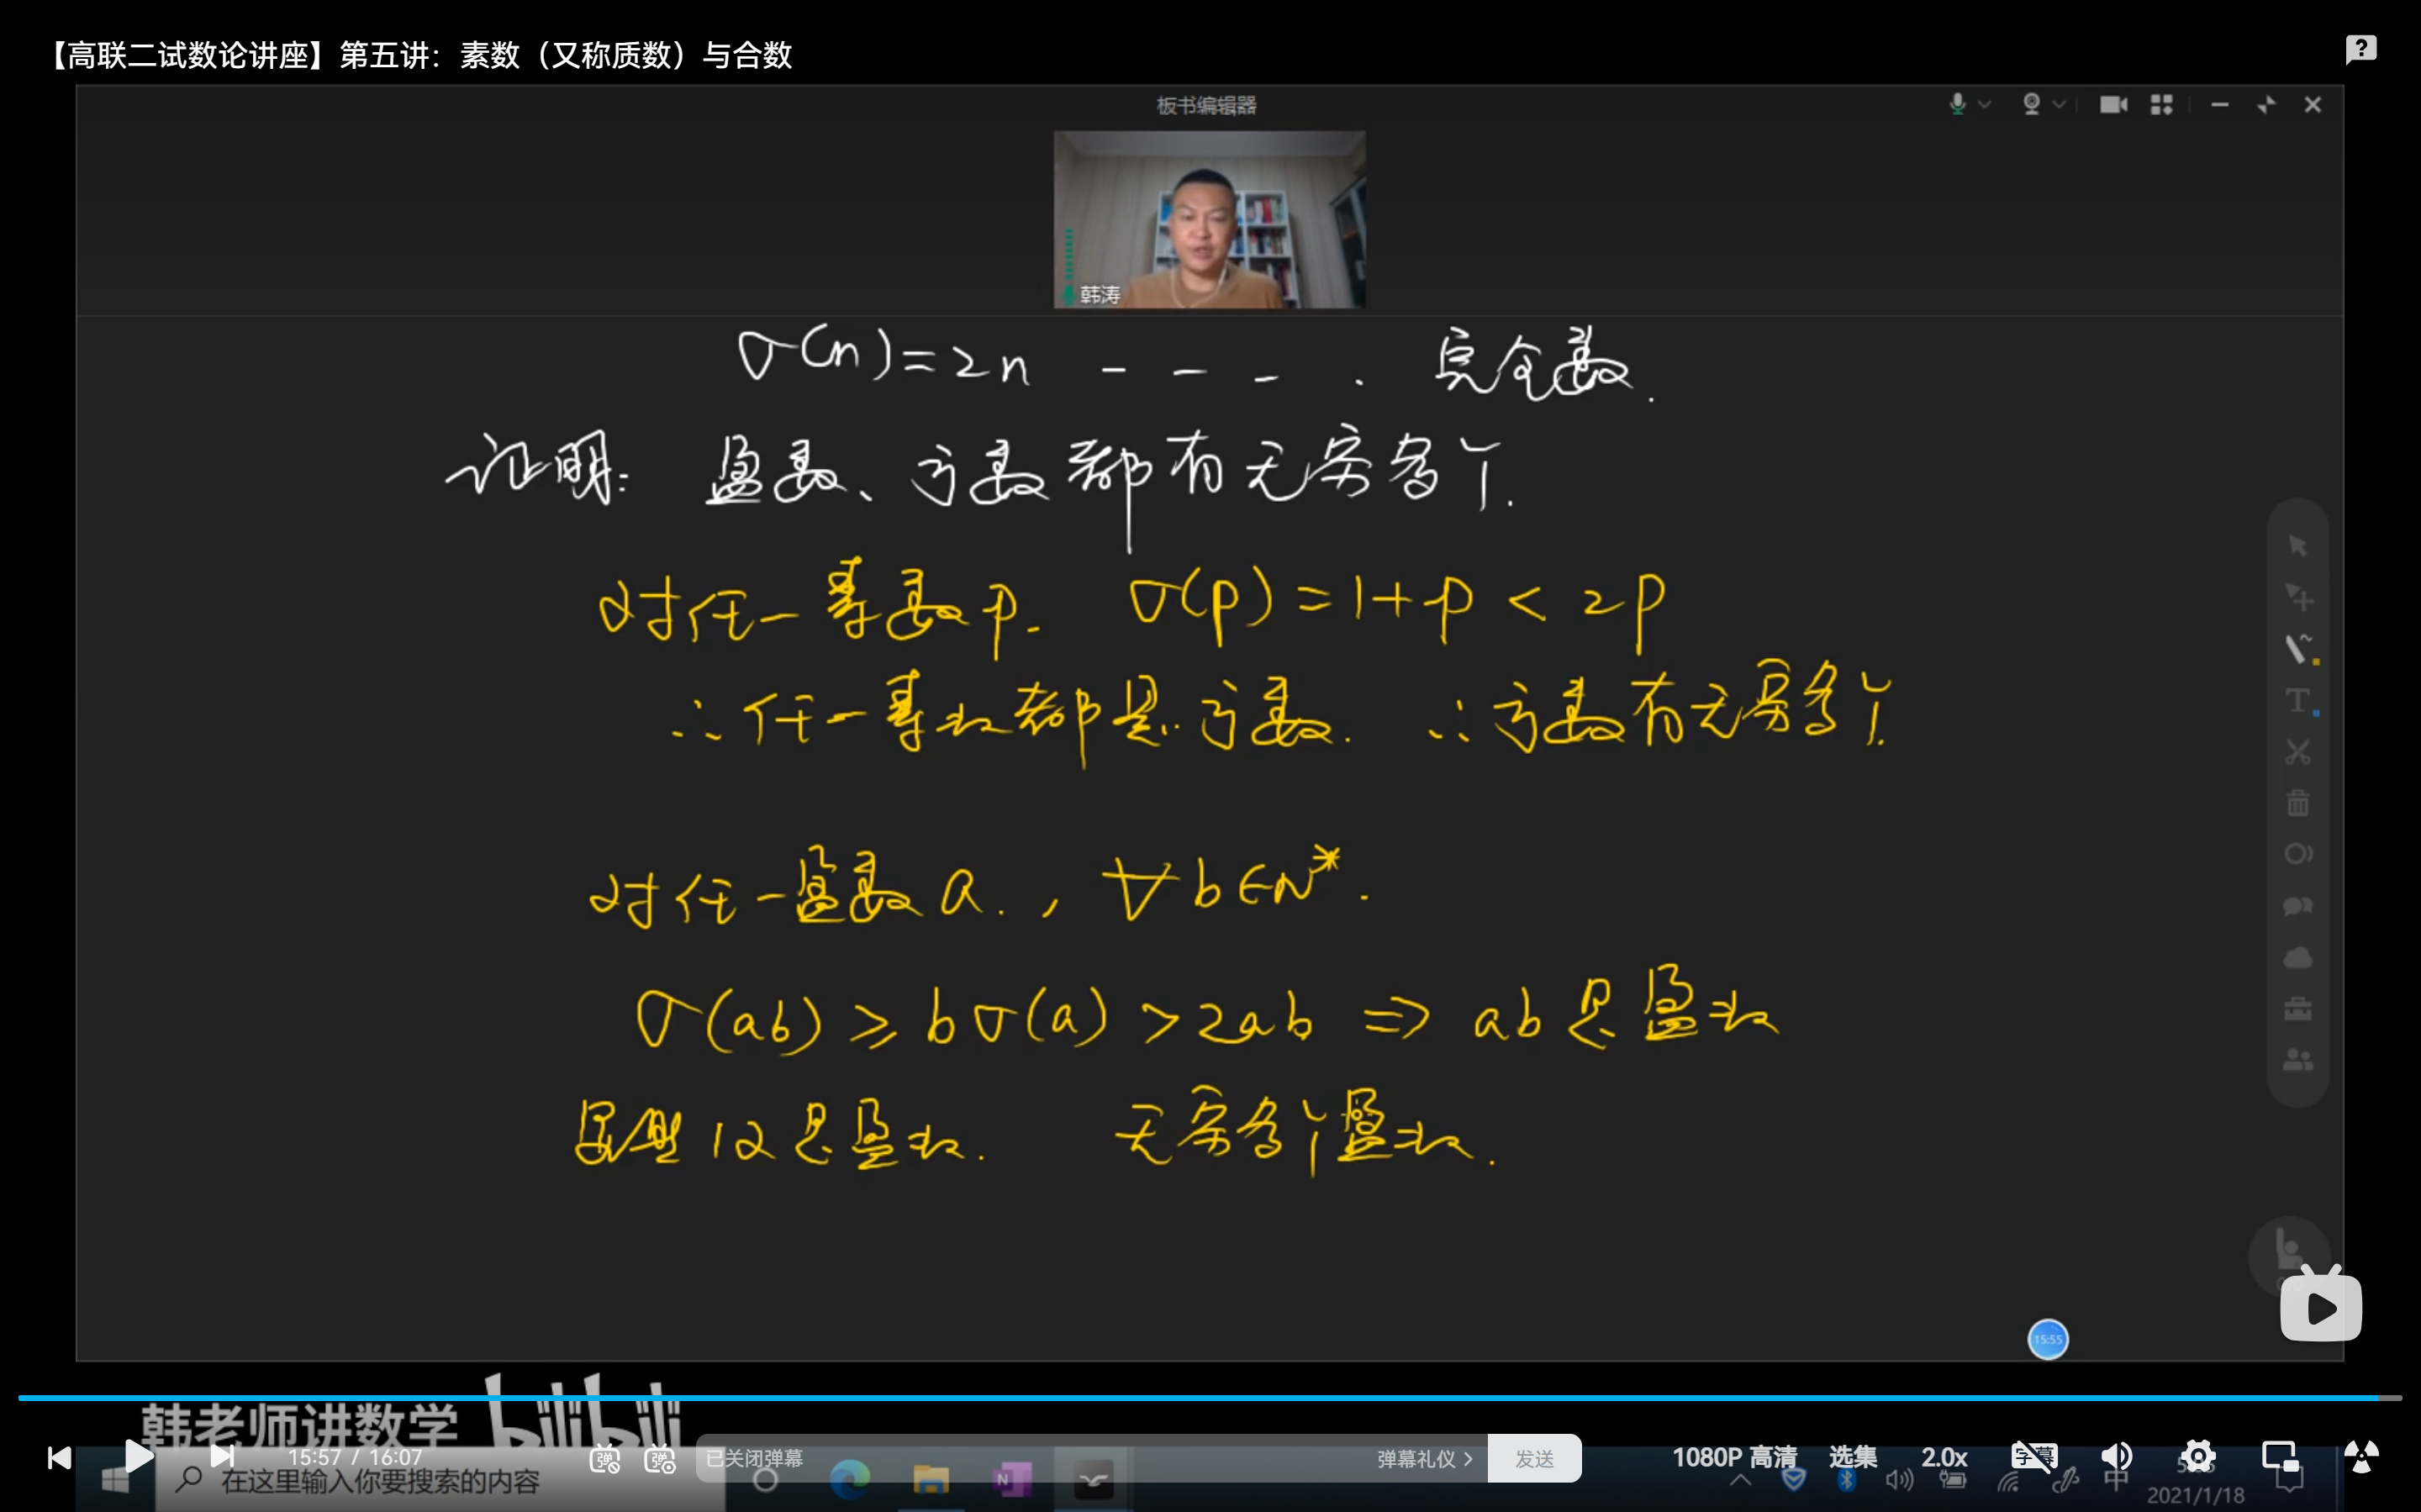 【高联二试数论讲座】第五讲：素数（又称质数）与合数
板书编辑器
韩涛
σ(n)=2n - - - . 完全数.
证明: 盈数、亏数都有无穷多个.
对任一素数p. σ(p)=1+p<2p
∴任一素数都是亏数. ∴亏数有无穷多个.
对任一盈数a., ∀b∈N*.
σ(ab)≥bσ(a)>2ab ⇒ ab是盈数
显然12是盈数. 无穷多个盈数.
15:55
韩老师讲数学 bilibili
15:57 / 16:07
已关闭弹幕
弹幕礼仪 >
发送
1080P 高清
选集
2.0x
在这里输入你要搜索的内容
中
2021/1/18